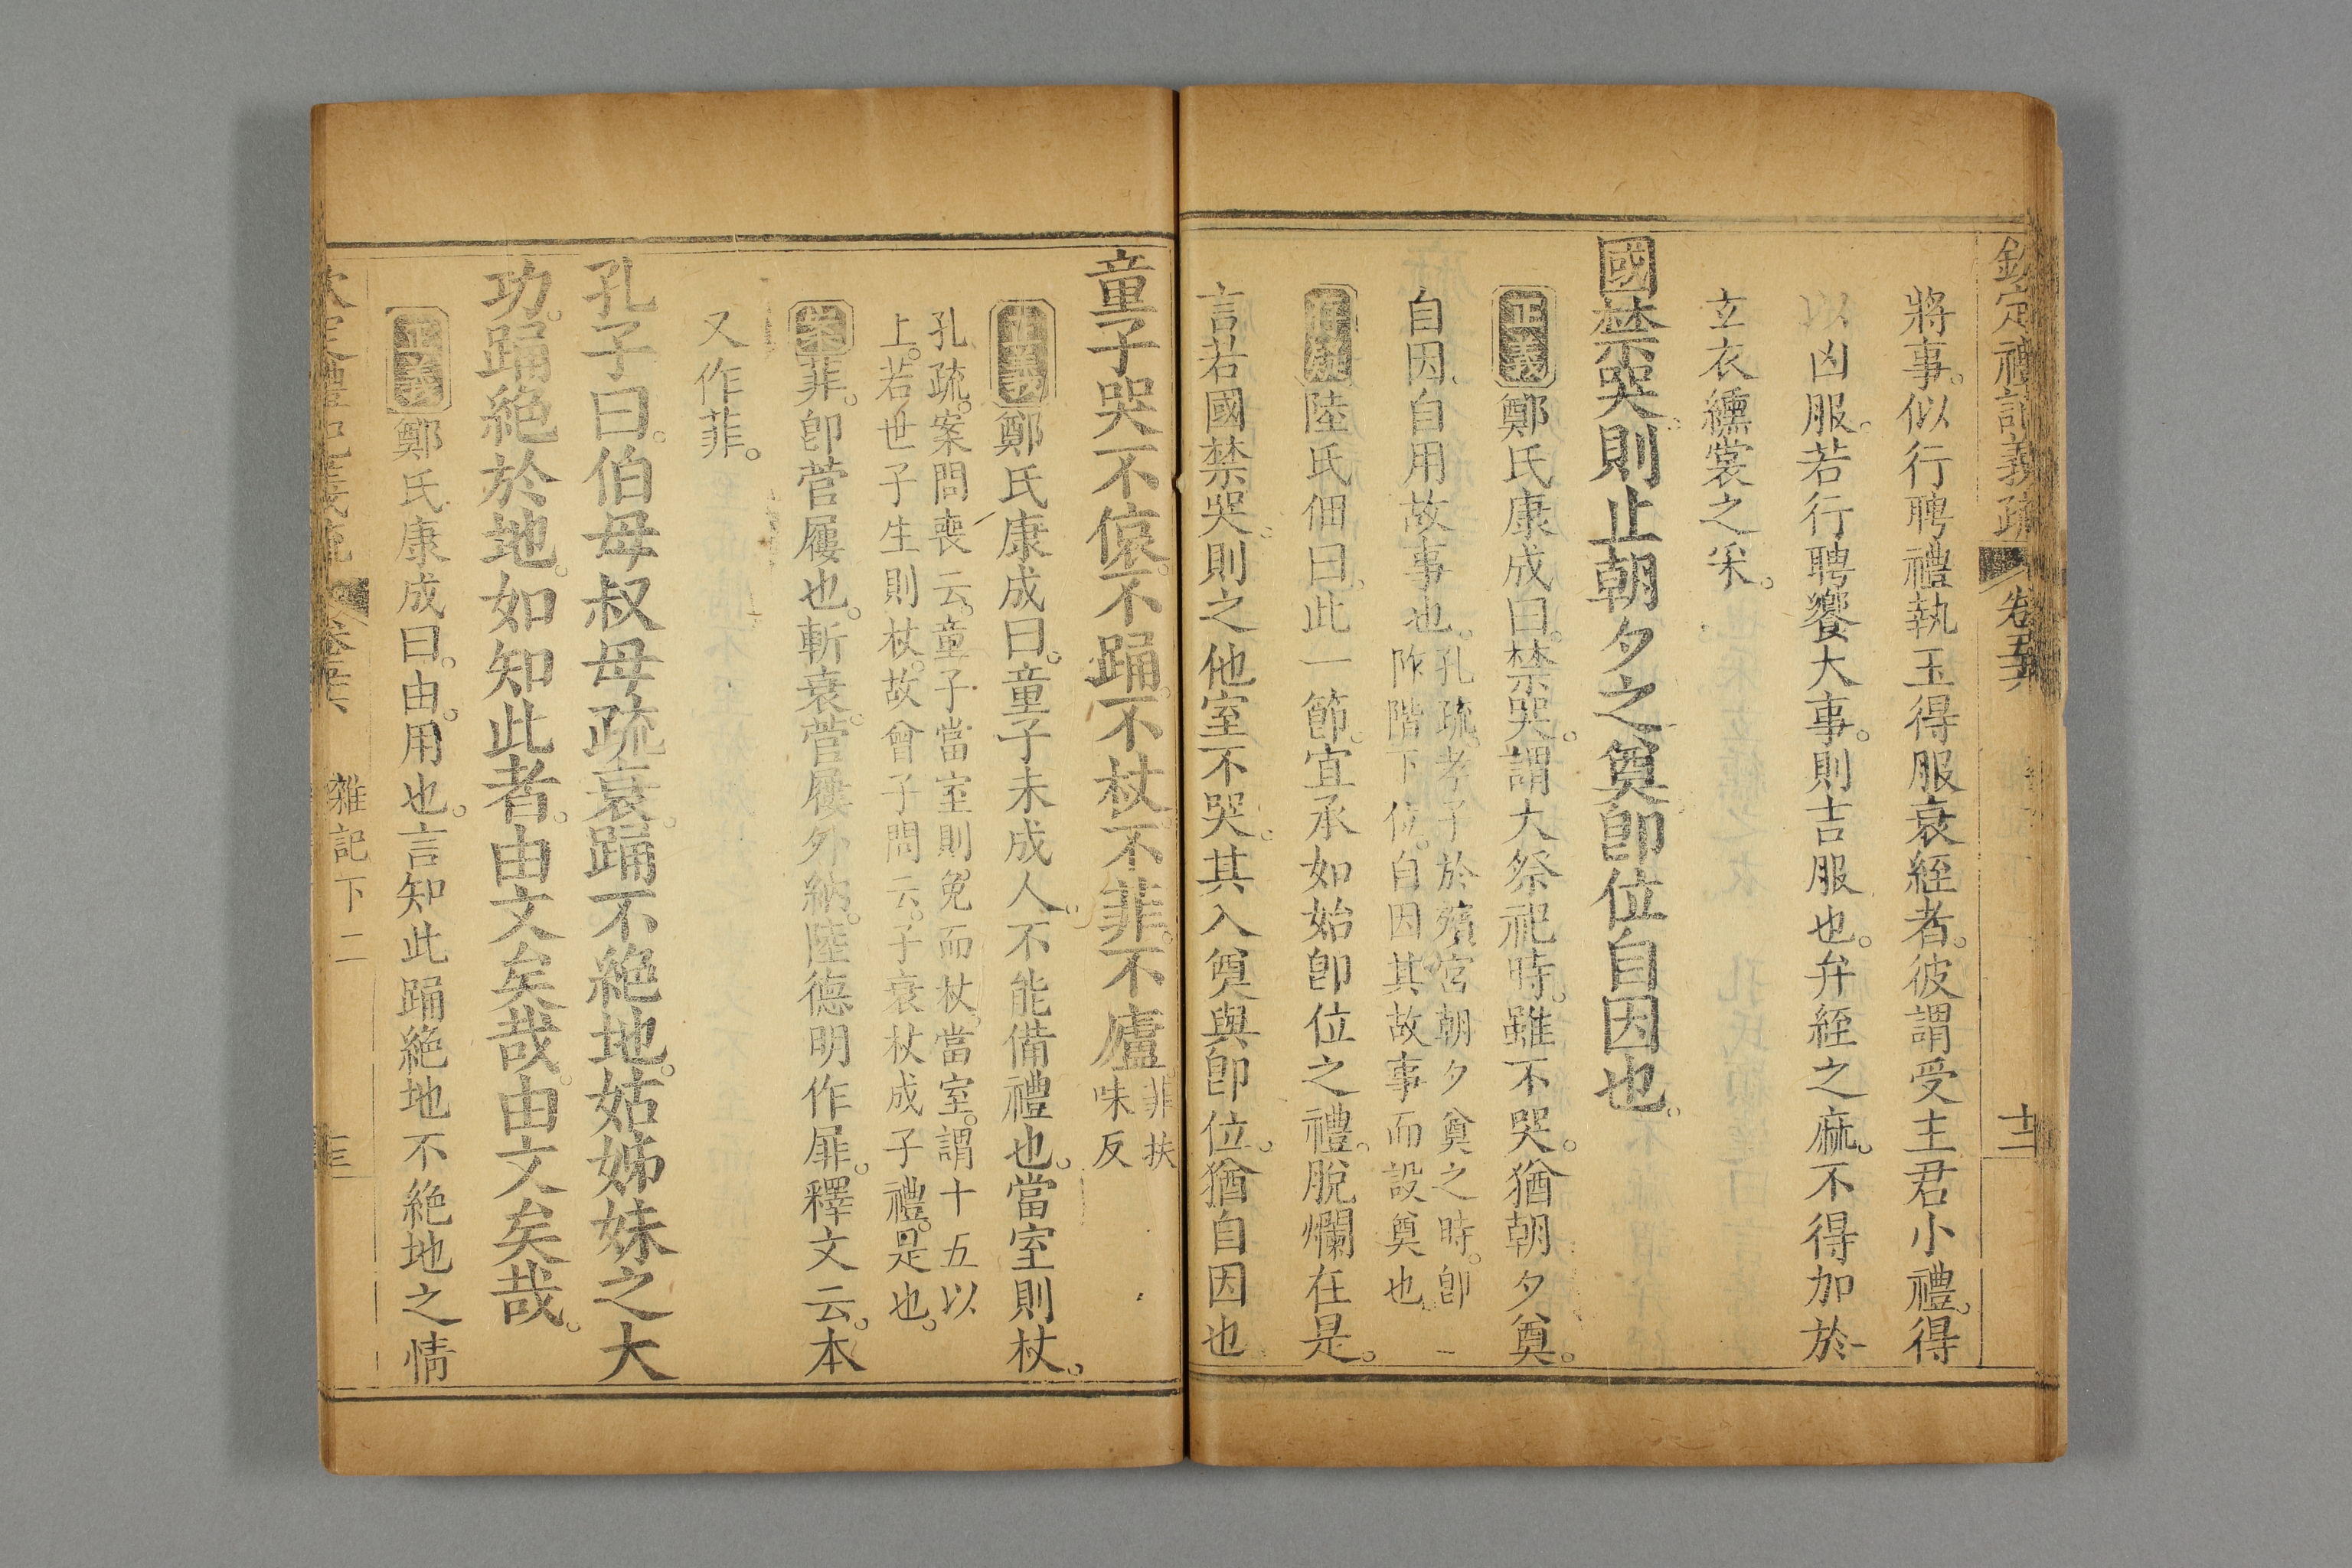 欽定禮記義疏 卷五十六 十二
將事。似行聘禮執玉得服衰絰者。彼謂受主君小禮。得
以凶服。若行聘饗大事。則吉服也。弁絰之麻。不得加於
玄衣纁裳之采。
國禁哭。則止朝夕之奠。卽位自因也。
正義鄭氏康成曰。禁哭。謂大祭祀時。雖不哭。猶朝夕奠。
自因。自用故事也。
孔疏。孝子於殯宮朝夕奠之時。卽
阼階下位。自因其故事而設奠也。
存疑陸氏佃曰。此一節。宜承如始卽位之禮。脫爛在是。
言若國禁哭。則之他室不哭。其入奠與卽位。猶自因也
童子哭不偯。不踊。不杖。不菲。不廬。
菲扶
味反
正義鄭氏康成曰。童子未成人。不能備禮也。當室則杖。
孔疏。案問喪云。童子當室則免而杖。當室。謂十五以
上。若世子生則杖。故曾子問云。子衰杖成子禮。是也。
案菲。卽菅屨也。斬衰。菅屨外納。陸德明作屝。釋文云。本
又作菲。
孔子曰。伯母叔母疏衰。踊不絶地。姑姊妹之大
功。踊絶於地。如知此者。由文矣哉。由文矣哉。
正義鄭氏康成曰。由。用也。言知此踊絶地不絶地之情
欽定禮記義疏 卷五十六 雜記下二 十三